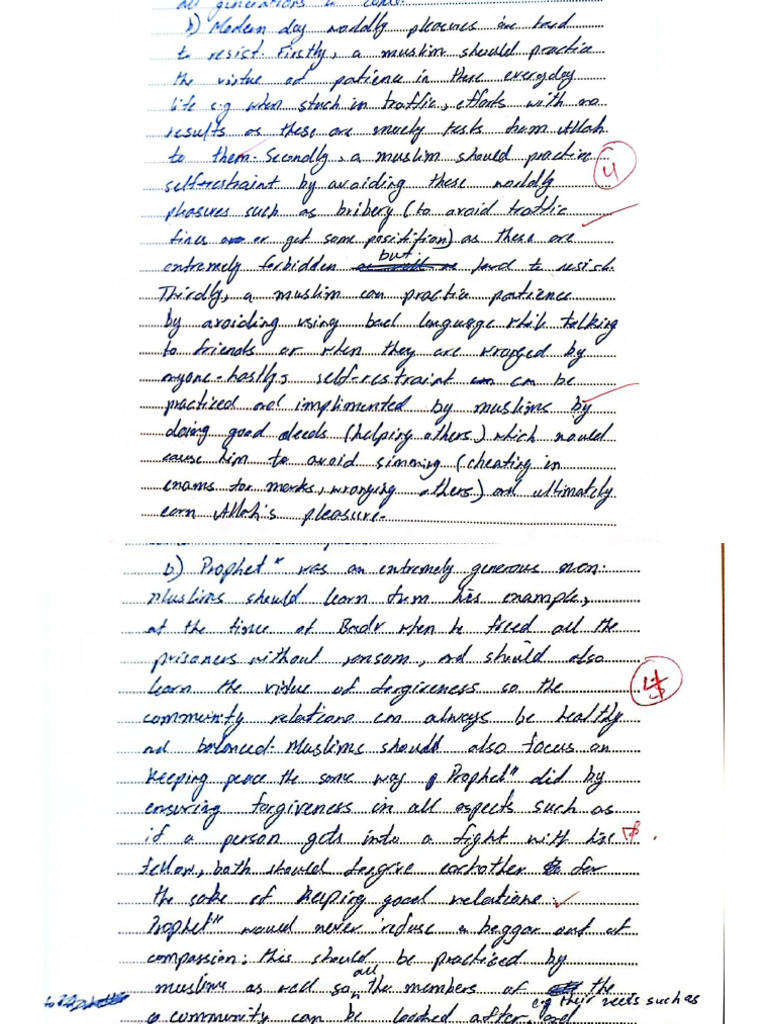 all generations to come.
b) Modern day worldly pleasures are hard
to resist. Firstly, a muslim should practice
the virtue of patience in these everyday
life e.g when stuck in traffic, efforts with no
results as these are merely tests from Allah
to them. Secondly, a muslim should practice
4
self-restraint by avoiding these worldly
pleasures such as bribery (to avoid traffic
fines or get some position) as these are
extremely forbidden but hard to resist.
Thirdly, a muslim can practice patience
by avoiding using bad language while talking
to friends or when they are wronged by
anyone. Lastly, self-restraint can be
practiced and implimented by muslims by
doing good deeds (helping others) which would
cause him to avoid sinning (cheating in
exams for marks, wronging others) and ultimately
earn Allah's pleasure.
b) Prophet was an extremely generous man.
Muslims should learn from his example,
at the time of Badr when he freed all the
prisoners without ransom, and should also
learn the virtue of forgiveness so the
4
community relations can always be healthy
and balanced. Muslims should also focus on
keeping peace the same way Prophet did by
ensuring forgiveness in all aspects such as
if a person gets into a fight with his
fellow, both should forgive eachother for
the sake of keeping good relations.
Prophet would never refuse a beggar out of
compassion; this should be practiced by
muslims as well so all the members of the
e.g their needs such as
a community can be looked after, and